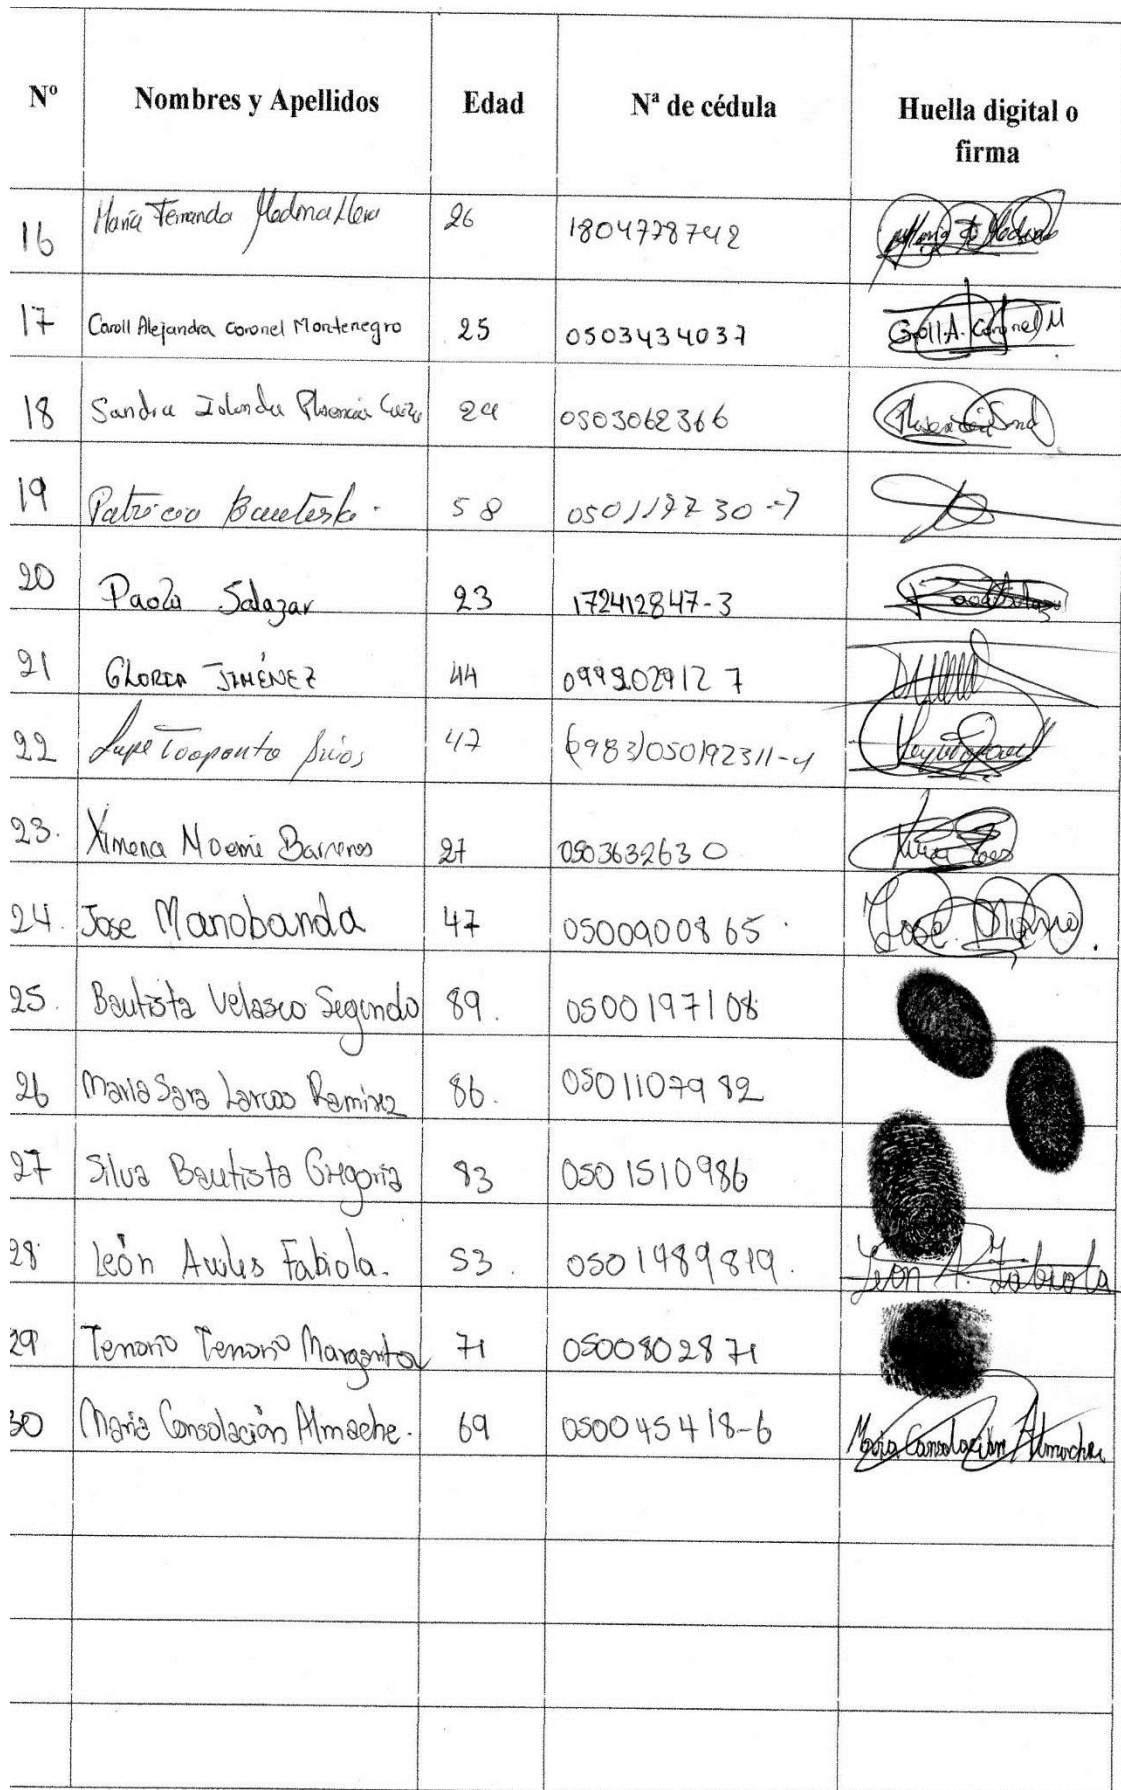 Nº Nombres y Apellidos Edad Nª de cédula Huella digital o firma
16 María Fernanda Medina 26 1804778742
17 Caroll Alejandra Coronel Montenegro 25 0503434037 Caroll.A. Coronel M
18 Sandra Iolanda Plasencia 0503062366
19 Patricio Bautista. 58 050119730-7
20 Paola Salazar 23 172412847-3
21 GLORIA JIMÉNEZ 44 09992029127
22 Lupe Toapanta 47 050192311-4
23. Ximena Noemi Barrenos 27 0503632630
24. Jose Manobanda 47 0500900865. Jose
25. Bautista Velasco Segundo 89. 0500197108
26 Maria Sara Larcos Ramirez 86. 0501107982
27 Silva Bautista Gregoria 83 0501510986
28 León Aviles Fabiola. 53. 0501989819. León A. Fabiola
29 Tenorio Tenorio Margarita 71 0500802871
30 María Consolación Almache. 69 050045418-6 María Consolación Almache